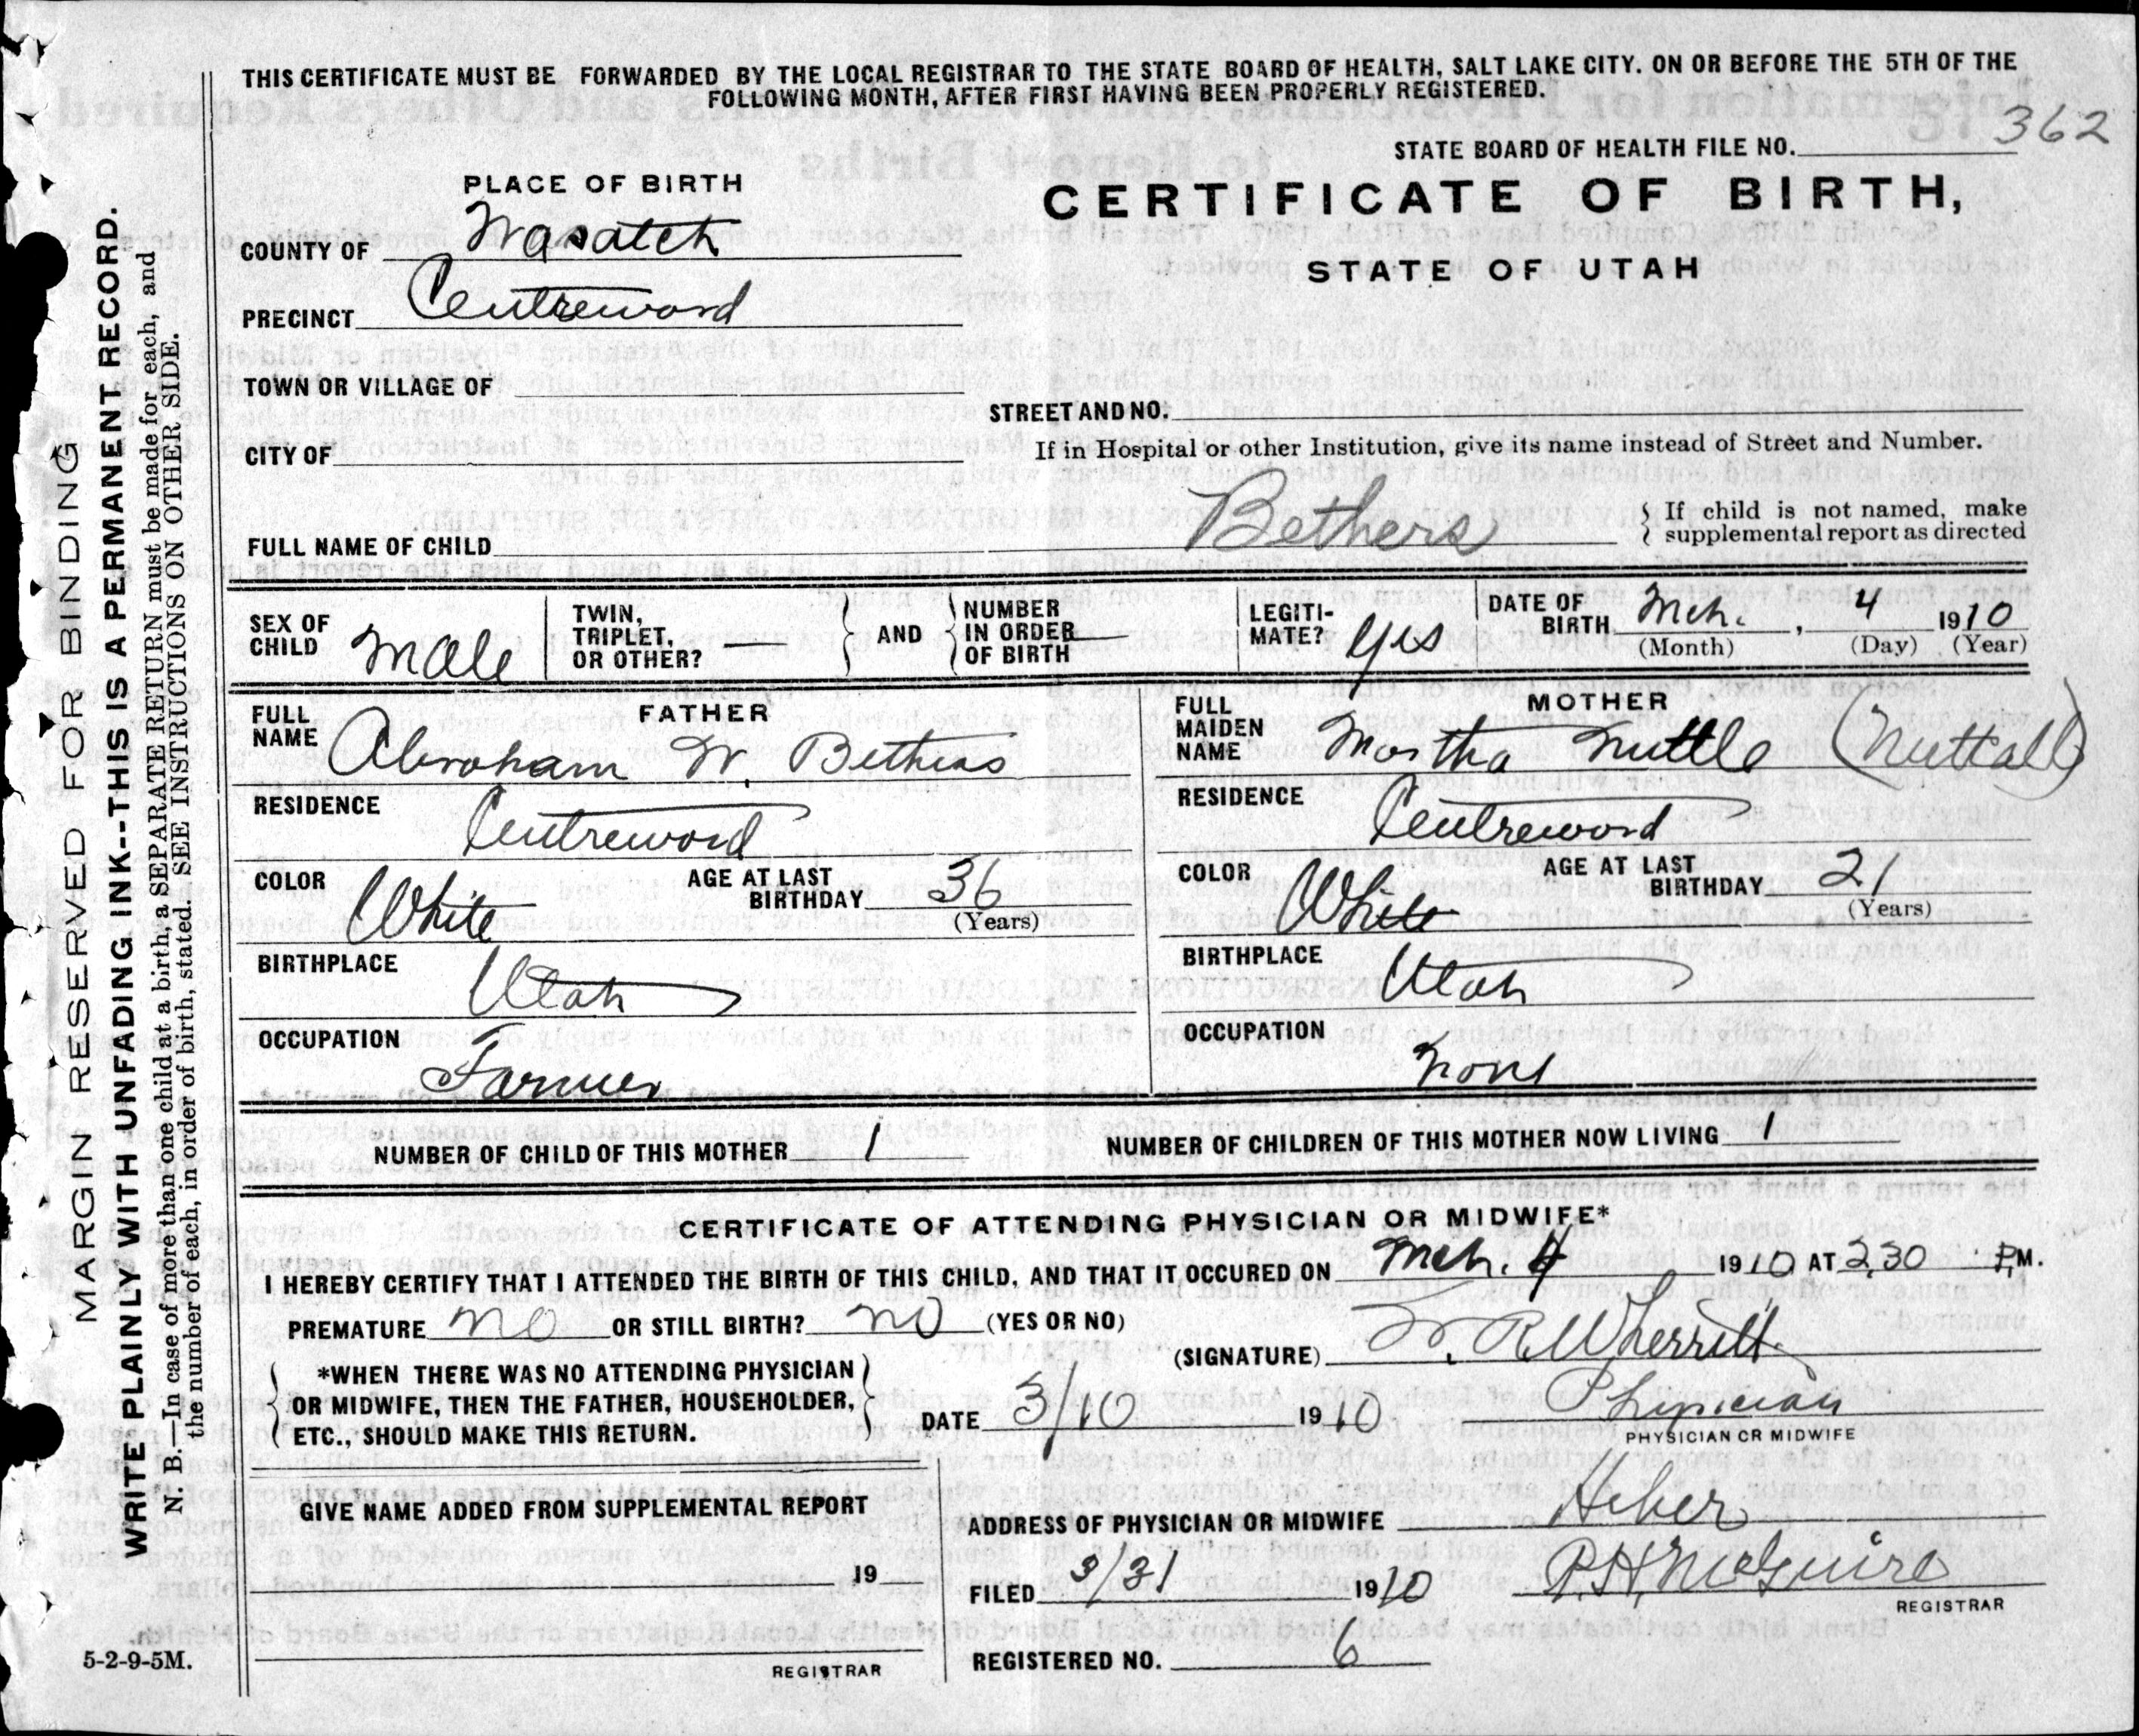 THIS CERTIFICATE MUST BE FORWARDED BY THE LOCAL REGISTRAR TO THE STATE BOARD OF HEALTH, SALT LAKE CITY. ON OR BEFORE THE 5TH OF THE
FOLLOWING MONTH, AFTER FIRST HAVING BEEN PROPERLY REGISTERED.
STATE BOARD OF HEALTH FILE NO. 362
PLACE OF BIRTH
CERTIFICATE OF BIRTH,
STATE OF UTAH
COUNTY OF Wasatch
PRECINCT Centreward
TOWN OR VILLAGE OF
STREET AND NO.
CITY OF
If in Hospital or other Institution, give its name instead of Street and Number.
FULL NAME OF CHILD Bethers
{ If child is not named, make
supplemental report as directed
SEX OF CHILD Male
TWIN, TRIPLET, OR OTHER? —
AND
NUMBER IN ORDER OF BIRTH —
LEGITI-MATE? Yes
DATE OF BIRTH Mch. , 4 1910
(Month) (Day) (Year)
FATHER
FULL NAME Abraham W. Bethers
RESIDENCE Centreward
COLOR White
AGE AT LAST BIRTHDAY 36
(Years)
BIRTHPLACE Utah
OCCUPATION Farmer
MOTHER
FULL MAIDEN NAME Martha Nuttle (Nuttall)
RESIDENCE Centreward
COLOR White
AGE AT LAST BIRTHDAY 21
(Years)
BIRTHPLACE Utah
OCCUPATION None
NUMBER OF CHILD OF THIS MOTHER 1
NUMBER OF CHILDREN OF THIS MOTHER NOW LIVING 1
CERTIFICATE OF ATTENDING PHYSICIAN OR MIDWIFE*
I HEREBY CERTIFY THAT I ATTENDED THE BIRTH OF THIS CHILD, AND THAT IT OCCURED ON Mch. 4 1910 AT 2.30 P.M.
PREMATURE no OR STILL BIRTH? no (YES OR NO)
(SIGNATURE) W. R. Wherritt
*WHEN THERE WAS NO ATTENDING PHYSICIAN
OR MIDWIFE, THEN THE FATHER, HOUSEHOLDER,
ETC., SHOULD MAKE THIS RETURN.
DATE 3/10 1910 Physician
PHYSICIAN OR MIDWIFE
GIVE NAME ADDED FROM SUPPLEMENTAL REPORT
19
REGISTRAR
ADDRESS OF PHYSICIAN OR MIDWIFE Heber
FILED 3/31 1910 P.H. McGuire
REGISTRAR
REGISTERED NO. 6
MARGIN RESERVED FOR BINDING
WRITE PLAINLY WITH UNFADING INK--THIS IS A PERMANENT RECORD.
N. B.—In case of more than one child at a birth, a SEPARATE RETURN must be made for each, and
the number of each, in order of birth, stated. SEE INSTRUCTIONS ON OTHER SIDE.
5-2-9-5M.